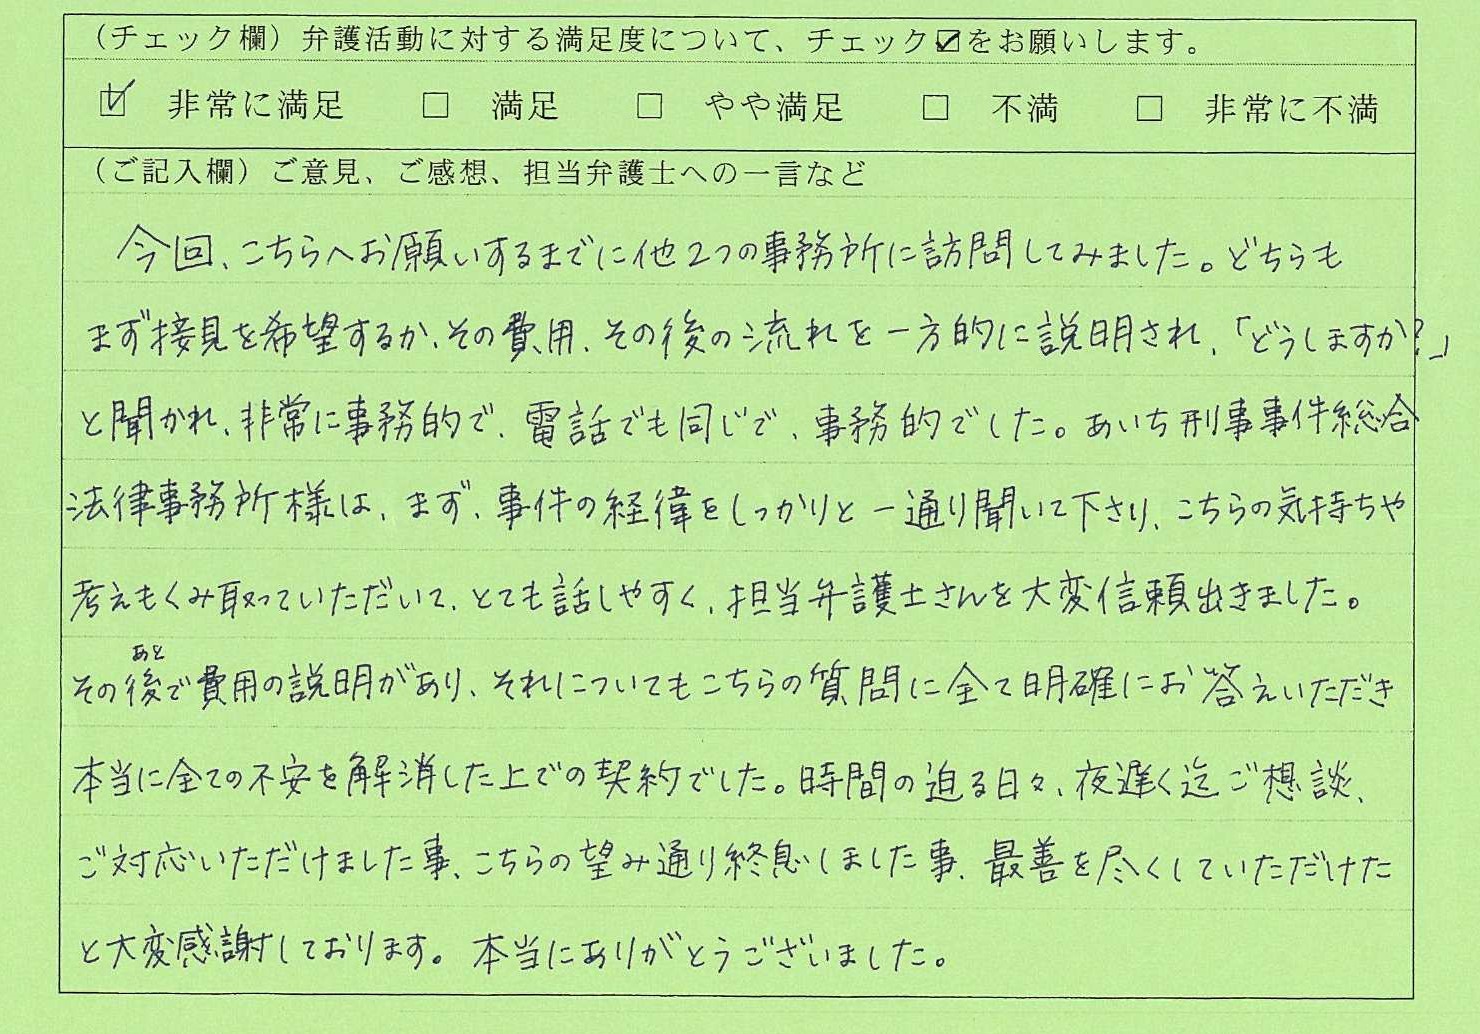 （チェック欄）弁護活動に対する満足度について、チェック☑をお願いします。
☑ 非常に満足 □ 満足 □ やや満足 □ 不満 □ 非常に不満
（ご記入欄）ご意見、ご感想、担当弁護士への一言など
今回、こちらへお願いするまでに他2つの事務所に訪問してみました。どちらも
まず接見を希望するか、その費用、その後の流れを一方的に説明され、「どうしますか?」
と聞かれ、非常に事務的で、電話でも同じで、事務的でした。あいち刑事事件総合
法律事務所様は、まず、事件の経緯をしっかりと一通り聞いて下さり、こちらの気持ちや
考えもくみ取っていただいて、とても話しやすく、担当弁護士さんを大変信頼出きました。
あと
その後で費用の説明があり、それについてもこちらの質問に全て明確にお答えいただき
本当に全ての不安を解消した上での契約でした。時間の迫る日々、夜遅く迄ご想談、
ご対応いただけました事、こちらの望み通り終息しました事、最善を尽くしていただけた
と大変感謝しております。本当にありがとうございました。